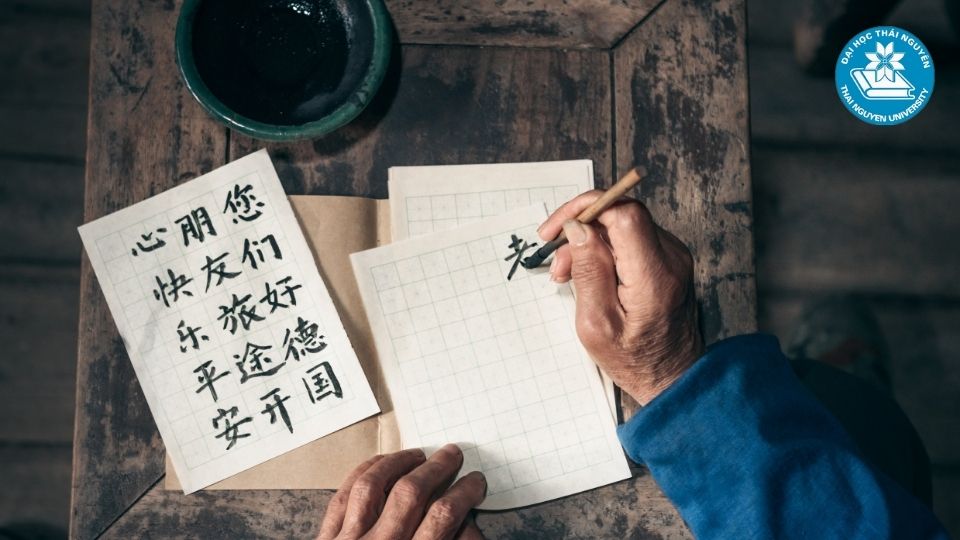 您们好德国
朋友旅途开
心快乐平安
ĐẠI HỌC THÁI NGUYÊN
THAI NGUYEN UNIVERSITY